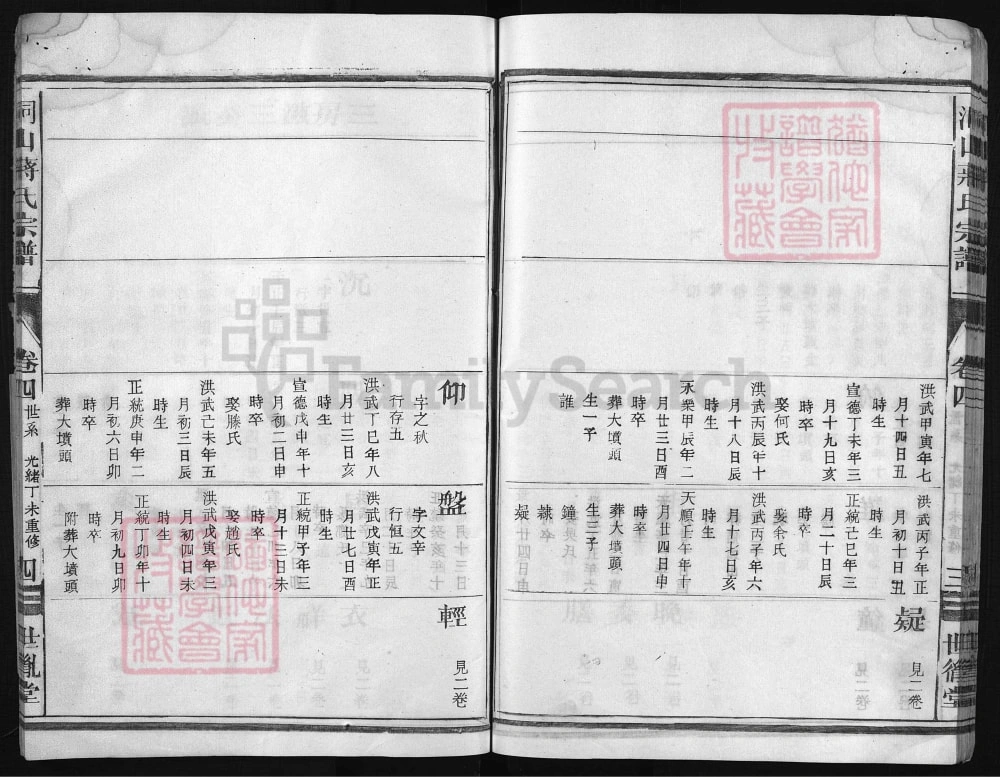 洞山蔣氏宗譜
卷四
三
世胤堂
洪武甲寅年七
月十四日丑
時生
宣德丁未年三
月十九日亥
時卒
娶何氏
洪武丙辰年十
月十八日辰
時生
永樂甲辰年二
月廿三日酉
時卒
葬大墳頭
生一子
誰
洪武丙子年正
月初十日丑
時生
正統己巳年三
月二十日辰
時卒
娶余氏
洪武丙子年六
月十七日亥
時生
天順壬午年十
月廿四日申
時卒
葬大墳頭
生三子
鐘
隸
疑
疑
見二卷
仰
字之秋
行存五
洪武丁巳年八
月廿三日亥
時生
宣德戊申年十
月初二日申
時卒
娶滕氏
洪武己未年五
月初三日辰
時生
正統庚申年二
月初六日卯
時卒
葬大墳頭
盤
字文辛
行恒五
洪武戊寅年正
月廿七日酉
時生
正統甲子年三
月十三日未
時卒
娶趙氏
洪武戊寅年三
月初四日未
時生
正統 卯年十
月初九日卯
時卒
附葬大墳頭
輕
見二卷
洞山蔣氏宗譜
卷四
世系
光緒丁未重修
四
世胤堂
猶他家
譜學會
特藏
猶他家
譜學會
特藏
FamilySearch